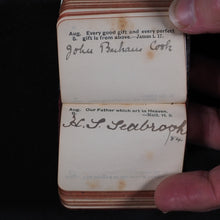 Aug. Every good gift and every perfect
5. gift is from above.—James i. 17.
John Burham Cook
Aug. Our Father which art in Heaven.
6 —Matt. vi. 9.
H. S. Seabrook
/84